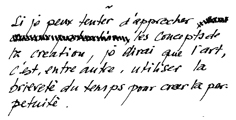 Si je peux tenter d'approcher
les concepts de
la création, je dirai que l'art,
c'est, entre autre, utiliser la
brièveté du temps pour créer la per-
petuité.